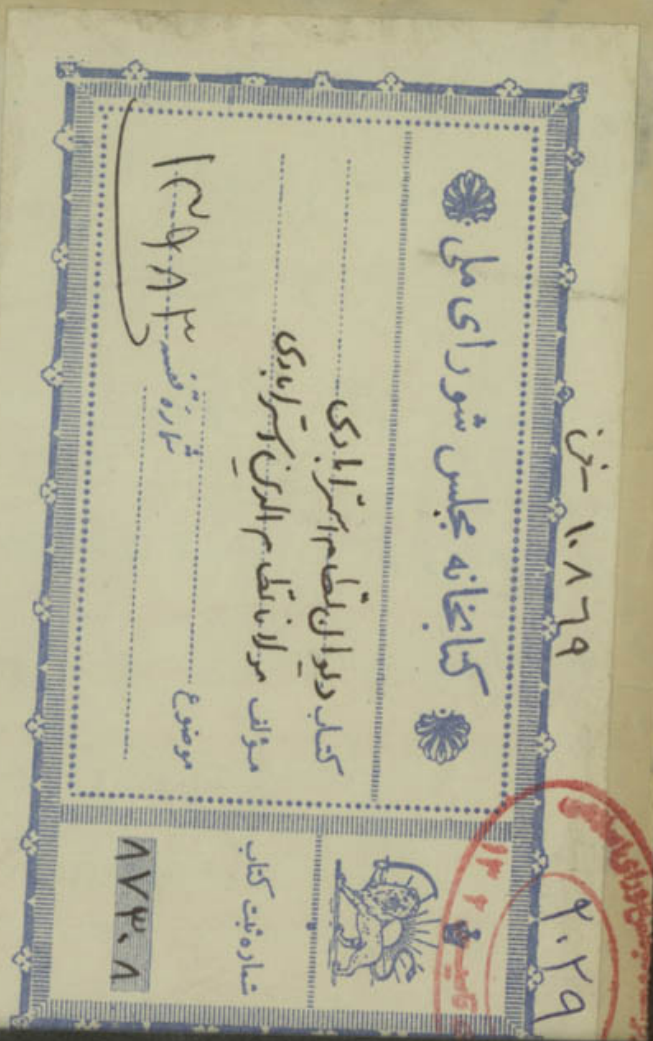 ۱۰۸۶۹ - خ
کتابخانه مجلس شورای ملی
کتاب دیوان نظام استرآبادی
مؤلف مولانا نظام الدین استرآبادی
موضوع
شماره قفسه ۱۳۹۸۳
شماره ثبت کتاب
۸۷۳۰۸
۲۰۲۹